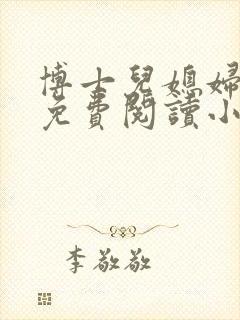 博士兒媳婦
免費閱讀小
李敬敬